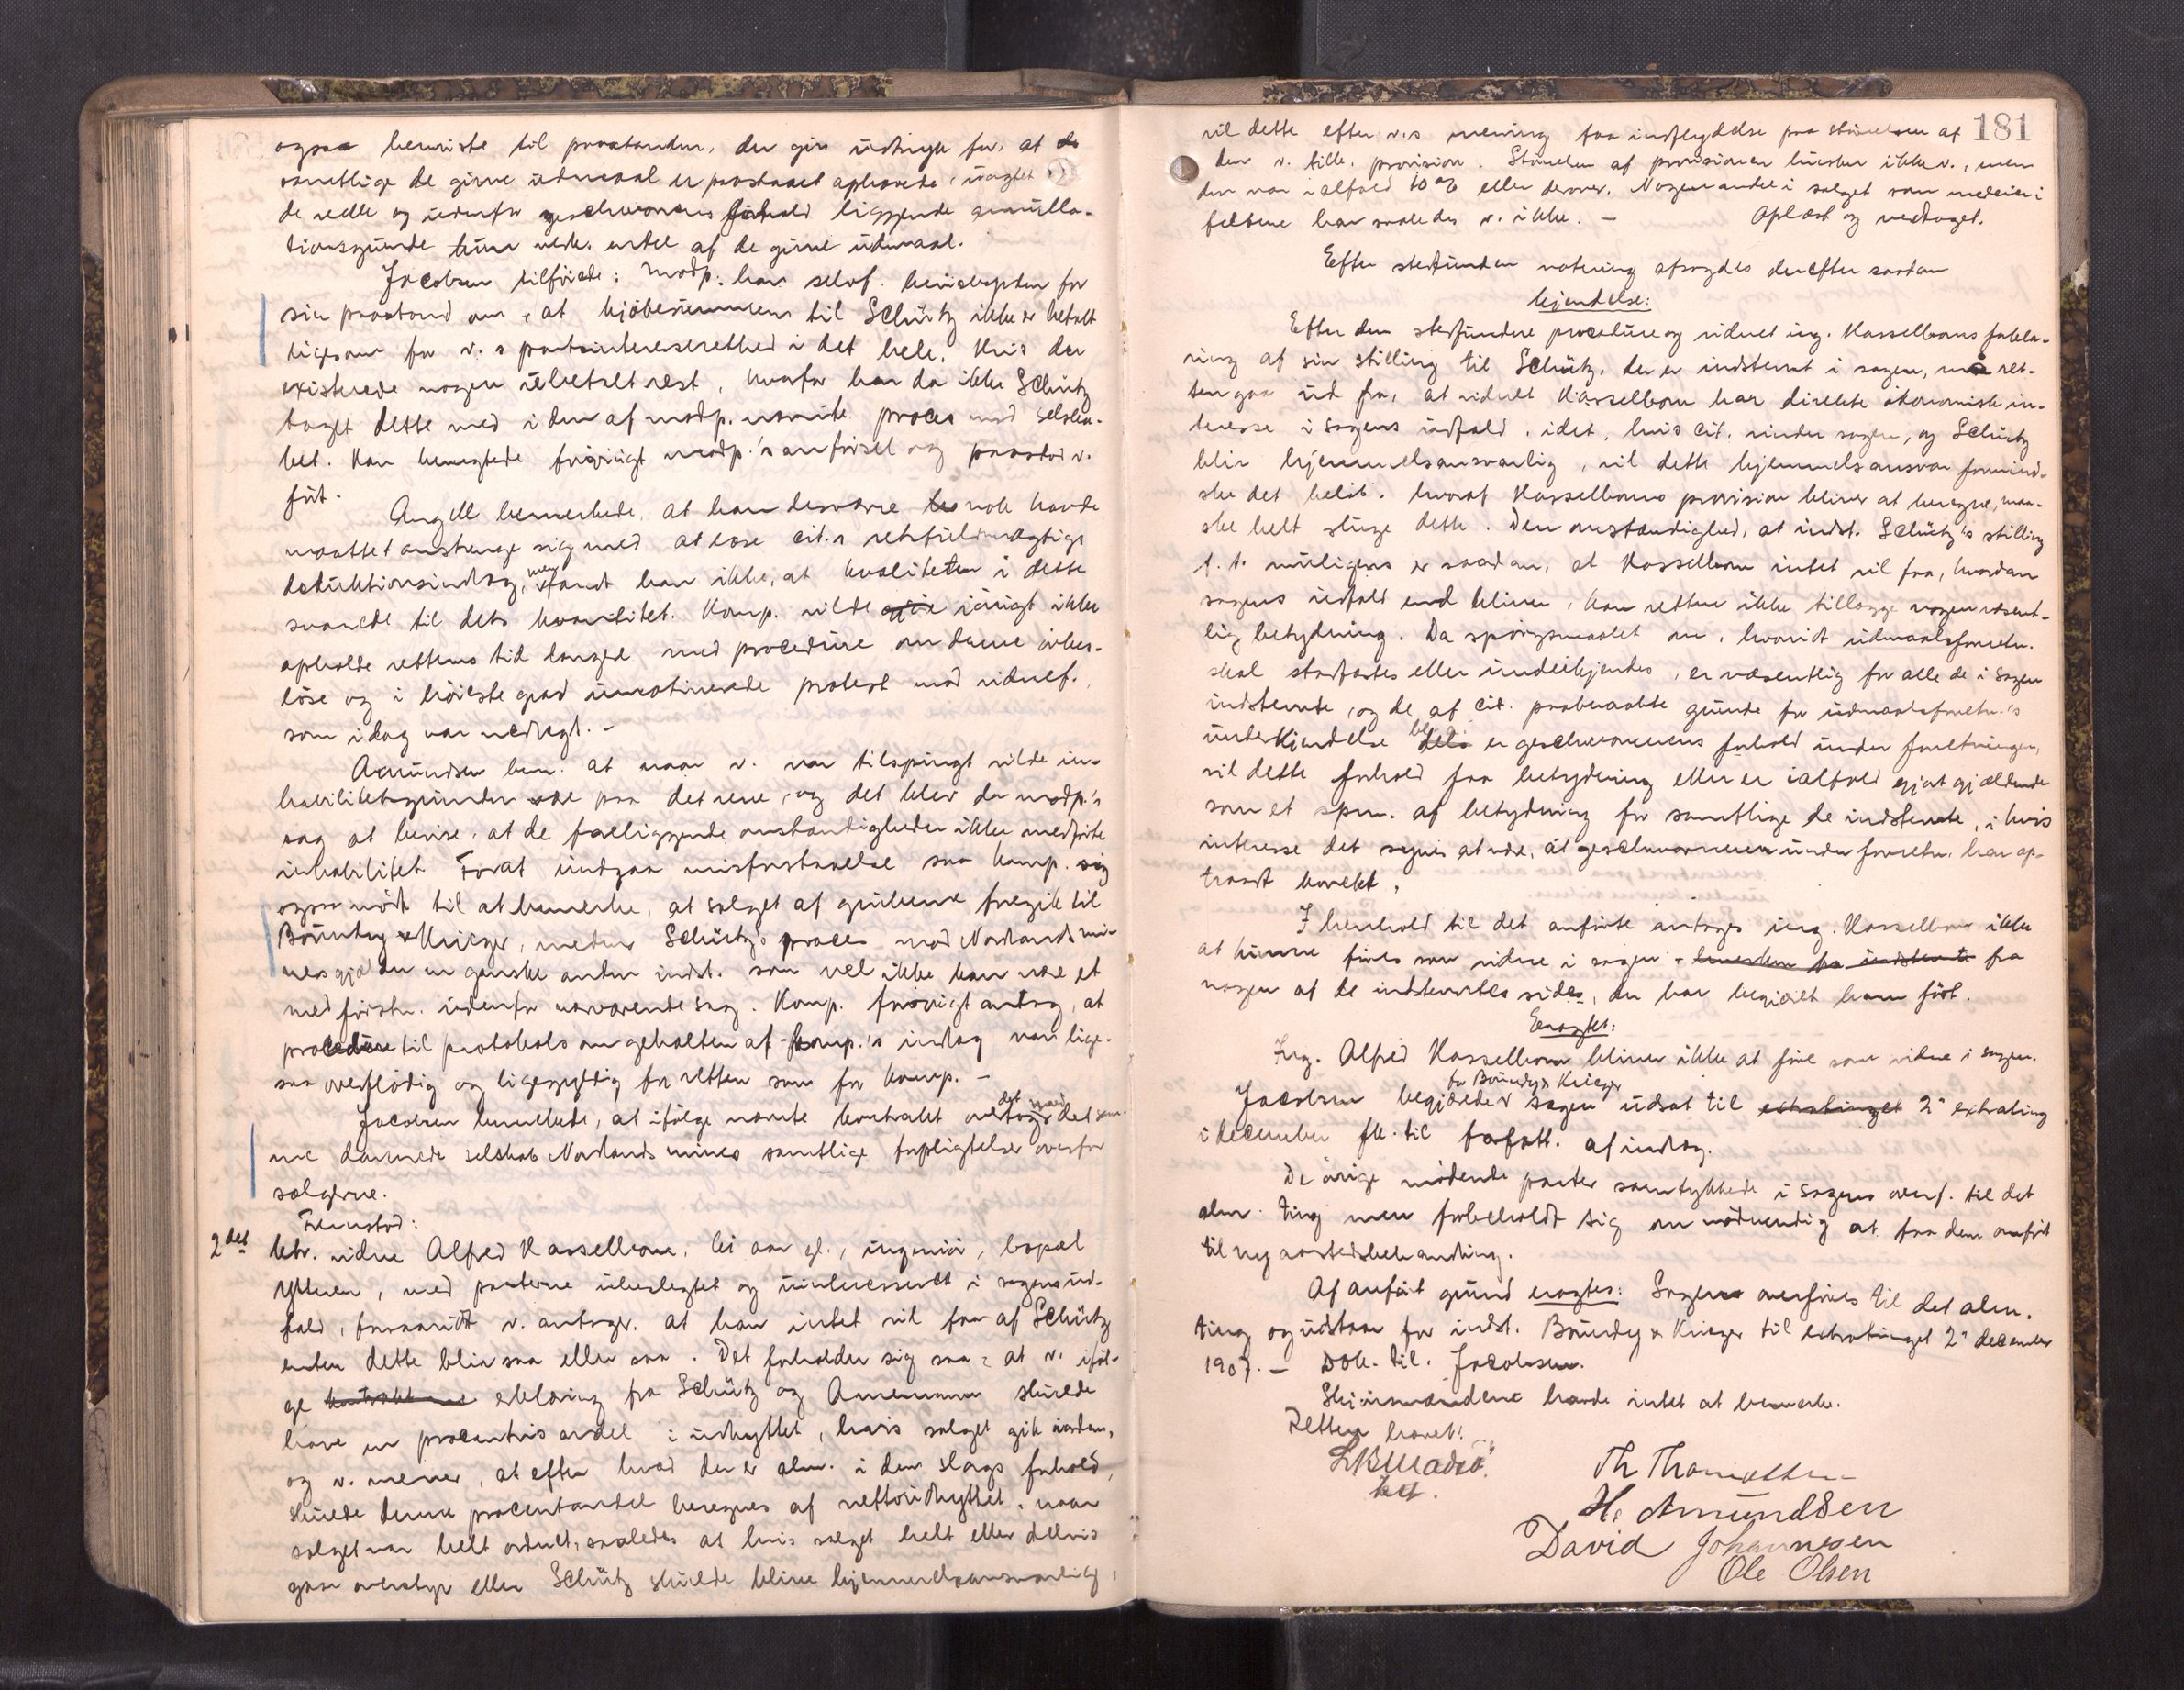 ogsaa henviste til paastanden, der gir udtryk for, at de
samtlige de givne udmaal er paastaaet ophævede, uagtet
de reelle og udenfor geschworenens forhold liggende annulla-
tionsgrunde kun vedk. endel af de givne udmaal.
Jacobsen tilföiede: Modp. har selvf. bevisbyrden for
sin paastand om, at kjöbesummen til Schütz ikke er betalt
ligesom for v.s partsinteresserethed i det hele. Hvis der
existerede nogen ubetalt rest, hvorfor har da ikke Schütz
taget dette med i den af modp. nævnte proces mod selska-
bet. Han benegtede forövrigt modp.'s anförsel og paastod v.
fört.
Angell bemerkede, at han desværre nok havde
maattet anstrenge sig med at læse cit.s retsfuldmægtigs
deduktionsindlæg, men fandt han ikke, at kvaliteten i dette
svarede til dets kvantitet. Komp. vilde iövrigt ikke
opholde rettens tid længere med procedure om denne örkes-
löse og i höieste grad umotiverede protest mod vidnef.
som idag var nedlagt. -
Amundsen bem. at naar v. var tilspurgt vilde in-
habilitetsgrunden være paa det rene, og det blev da modp.'s
sag at bevise, at de foreliggende omstændigheder ikke medförte
inhabilitet. Forat undgaa misforstaaelse saa komp. sig
ogsaa nödt til at bemerke, at salget af gruberne foregik til
Böundy & Krieger, medens Schütz's proces mod Nordlands mi-
nes gjælder en ganske anden indst. som vel ikke kan være et
medförstn. udenfor nærværende sag. Komp. forövrigt antog, at
procedure til protokols om gehalten af komp.'s indlæg var lige-
saa overflödig og ligegyldig for retten som for komp. -
Jacobsen bemerkede, at ifölge nævnte kontrakt overtog det
dannede selskab Nordlands mines samtlige forpligtelser overfor
sælgerne.
Fremstod:
2det
vidne Alfred Hasselbom, aar gl., ingeniör, bopæl
Ytteren, med parterne ubeslegtet og uinteresseret i sagens ud-
fald, forsaavidt v. antager, at han intet vil faa af Schütz
enten dette blir saa eller saa. Det forholder sig saa, at v. iföl-
ge erklæring fra Schütz og skulde
have en procentvis andel i udbyttet, hvis salget gik iorden,
og v. mener, at efter hvad der er alm. i den slags forhold,
skulde denne procentandel beregnes af nettoudbyttet, naar
salget var helt ordnet, saaledes at hvis salget helt eller delvis
gaar overstyr eller Schütz skulde blive hjemmelsansvarlig,
181
vil dette efter v.s mening faa indflydelse paa störrelsen af
den v. tilk. provision. Störrelsen af provisionen husker ikke v., men
den var ialfald 10 % eller derover. Nogen andel i salget som medeier i
felterne har saaledes v. ikke. - Oplæst og vedtaget.
Efter stedfunden votering afsagdes derefter saadan
kjendelse:
Efter den stedfundne procedure og vidnet ing. Hasselboms forkla-
ring af sin stilling til Schütz, der er indstevnt i sagen, maa ret-
ten gaa ud fra, at vidnet Hasselbom har direkte ökonomisk in-
teresse i sagens udfald, idet, hvis cit. vinder sagen, og Schütz
blir hjemmelsansvarlig, vil dette hjemmelsansvar formind-
ske det belöb, hvoraf Hasselboms provision bliver at beregne, maa-
ske helt sluge dette. Den omstændighed, at indst. Schütz's stilling
f. t. muligens er saadan, at Hasselbom intet vil faa, hvordan
sagens udfald end bliver, kan retten ikke tillægge nogen væsent-
lig betydning. Da spörgsmaalet om, hvorvidt udmaalsforretn.
skal stadfæstes eller underkjendes, er væsentlig for alle de i sagen
indstevnte, og de af cit. paaberaabte grunde for udmaalsforretn.'s
underkjendelse er geschworenens forhold under forretningen,
vil dette forhold faa betydning eller er ialfald gjort gjældende
som et spm. af betydning for samtlige de indstevnte, i hvis
interesse det synes at være, at geschworenen under forretn. har op-
traadt korrekt.
I henhold til det anförte antages ing. Hasselbom ikke
at kunne föres som vidne i sagen - hverken fra indstevnte fra
nogen af de indstevntes side, der har begjært ham fört.
Eragtet:
Ing. Alfred Hasselbom bliver ikke at före som vidne i sagen.
Jacobsen begjærede for Böundy & Krieger sagen udsat til extratinget 2' extrating
i december fk. til forfatt. af indlæg.
De övrige mödende parter samtykkede i sagens overf. til det
alm. ting men forbeholdt sig om nödvendig at faa den overfört
til ny aastedsbehandling.
Af anfört grund eragtes: Sagen overföres til det alm.
ting og udstaar for indst. Böundy & Krieger til extratinget 2' december
1907. - Dok. til. Jacobsen.
Skjönsmændene havde intet at bemerke.
Retten hævet!
Th Thomassen
H. Amundsen
David Johannesen
Ole Olsen